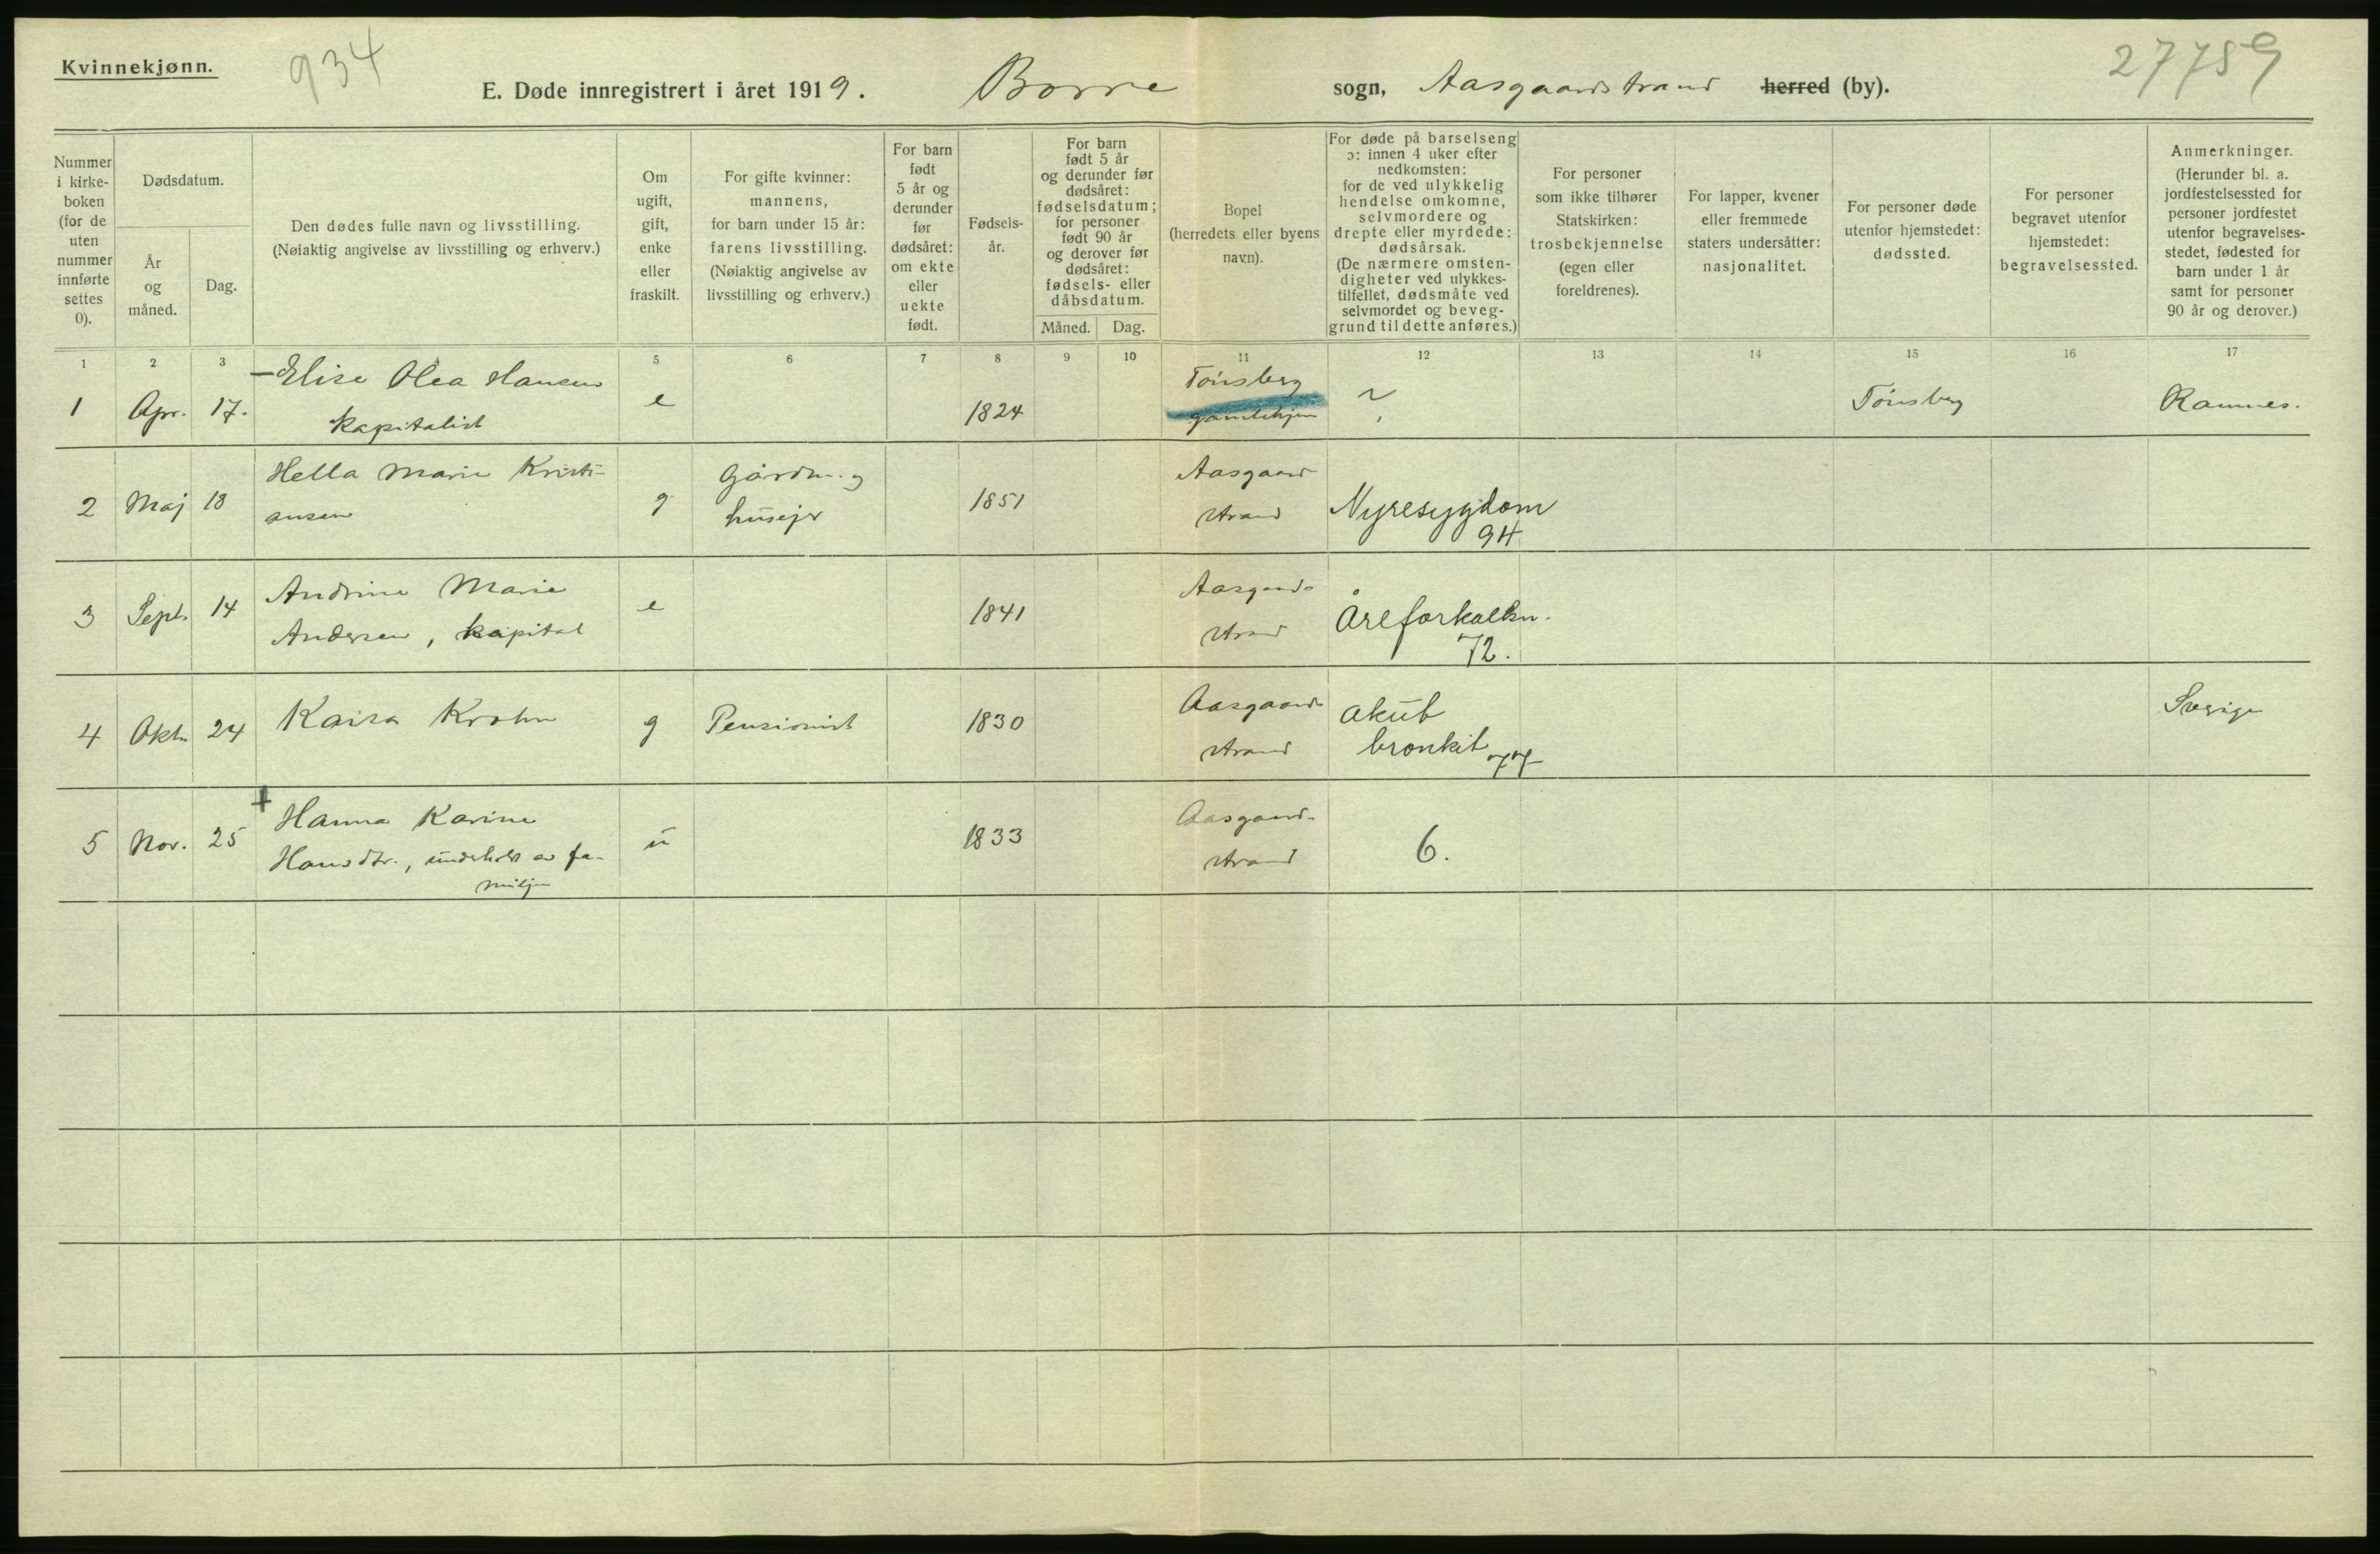 Kvinnekjønn.
934
E. Døde innregistrert i året 1919. Borre sogn, Aasgaardstrand herred (by).
27759
Nummer i kirke- boken (for de uten nummer innførte settes 0).
Dødsdatum.
År og måned.
Dag.
Den dødes fulle navn og livsstilling.
(Nøiaktig angivelse av livsstilling og erhverv.)
Om ugift, gift, enke eller fraskilt.
For gifte kvinner: mannens, for barn under 15 år: farens livsstilling. (Nøiaktig angivelse av livsstilling og erhverv.)
For barn født 5 år og derunder før dødsåret: om ekte eller uekte født.
Fødsels- år.
For barn født 5 år og derunder før dødsåret: fødselsdatum; for personer født 90 år og derover før dødsåret: fødsels- eller dåbsdatum.
Måned. Dag.
Bopel (herredets eller byens navn).
For døde på barselseng ɔ: innen 4 uker efter nedkomsten: for de ved ulykkelig hendelse omkomne, selvmordere og drepte eller myrdede: dødsårsak. (De nærmere omsten- digheter ved ulykkes- tilfellet, dødsmåte ved selvmordet og beveg- grund til dette anføres.)
For personer som ikke tilhører Statskirken: trosbekjennelse (egen eller foreldrenes).
For lapper, kvener eller fremmede staters undersåtter: nasjonalitet.
For personer døde utenfor hjemstedet: dødssted.
For personer begravet utenfor hjemstedet: begravelsessted.
Anmerkninger. (Herunder bl. a. jordfestelsessted for personer jordfestet utenfor begravelses- stedet, fødested for barn under 1 år samt for personer 90 år og derover.)
1 2 3 5 6 7 8 9 10 11 12 13 14 15 16 17
– Elise Olea Hansen Tönsberg
1 Apr. 17. kapitalist e 1824 gamlehjem Tönsberg Ramnes.
Hella Marie Kristi- Gårdm. og Aasgaard
2 Maj 18 ansen g husejer 1851 strand Nyresygdom
94
Andrine Marie Aasgaards
3 Sept. 14 Andersen, kapital e 1841 strand Åreforkalkn.
72.
Aasgaard akut Sverige
4 Okt. 24 Kaisa Krohn g Pensionist 1830 strand bronkit 77
+ Hanna Karine Aasgaard-
5 Nov. 25 Hansdtr., underholdt av fa- u 1833 strand 6.
miljen